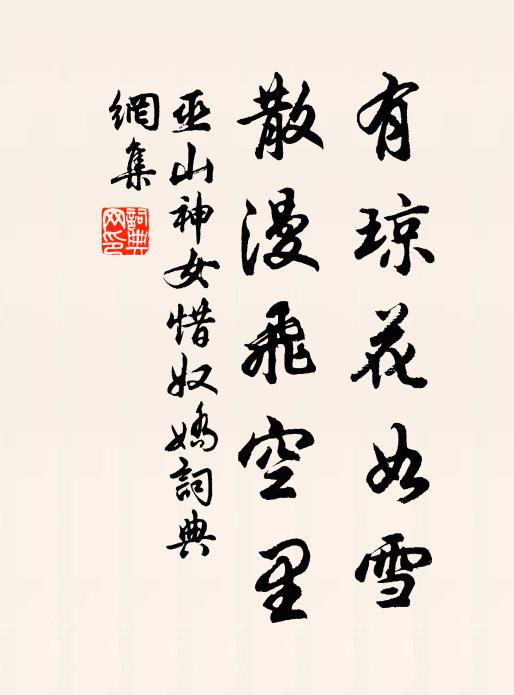 有琼花如雪
散漫飛空里
巫山神女惜奴嬌詞典
網集
詞典
网印